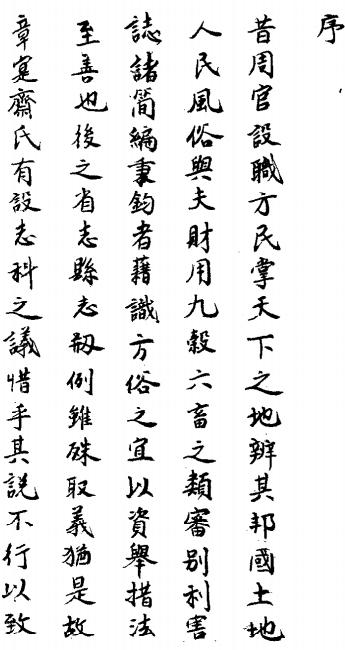 序
昔周官設職方民掌天下之地辨其邦國土地
人民風俗與夫財用九穀六畜之類審别利害
誌諸简編秉鈞者藉識方俗之宜以資舉措法
至善也後之省志縣志剏例雖殊取義猶是故
章寔齋氏有設志科之議惜乎其説不行以致